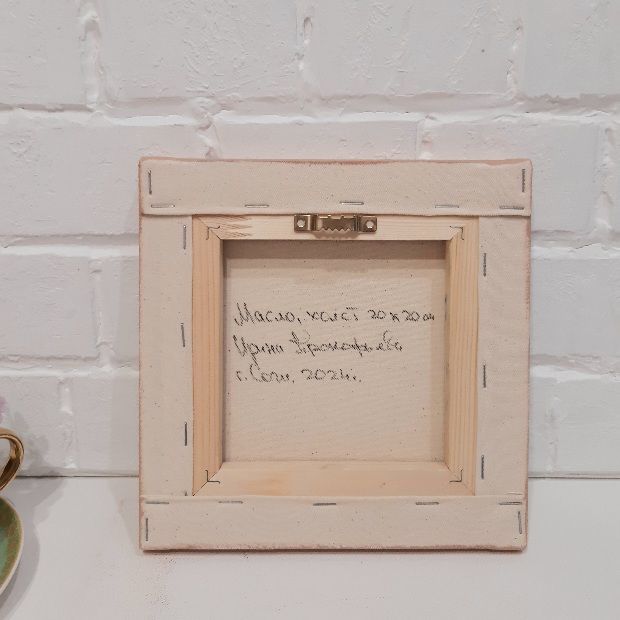 Масло, холст 20х20см
Ирина Прокофьева
г. Сочи, 2024г.